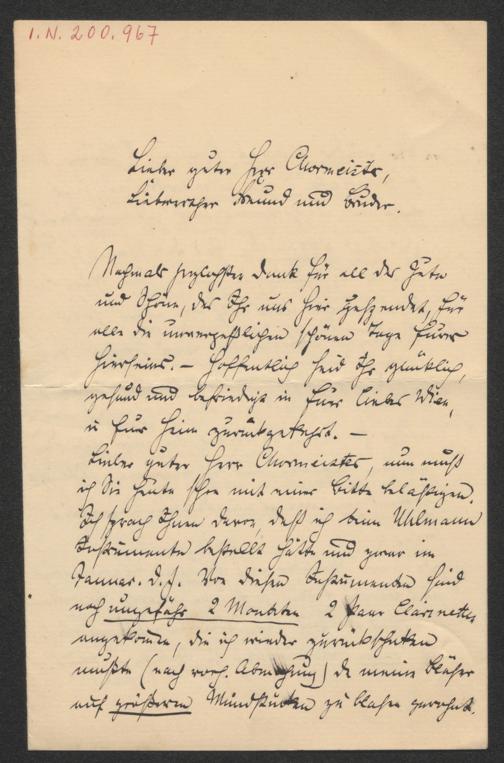 I.N. 200.967
Lieber guter Herr Chormeister,
Liebwerther Freund und Bruder.
Nochmals herzlichsten Dank für all das Gute
und Schöne, das Ihr uns hier gespendet, für
alle die unvergeßlichen schönen Tage Eures
Hierseins. – Hoffentlich seid Ihr glücklich,
gesund und befriedigt in Euer liebes Wien,
u Euer Heim zurückgekehrt. –
Lieber guter Herr Chormeister, nun muß
ich Sie heute schon mit einer Bitte belästigen.
Ich sprach Ihnen davon, daß ich beim Uhlmann
Instrumente bestellt hätte und zwar im
Jannar. d. J. Von diesen Instrumenten sind
nach ungefähr 2 Monaten 2 Paar Clarinetten
angekommen, die ich wieder zurückschicken
mußte (nach vorh. Abmachung) da meine Bläser
auf größeren Mundstücken zu blasen gewohnt.